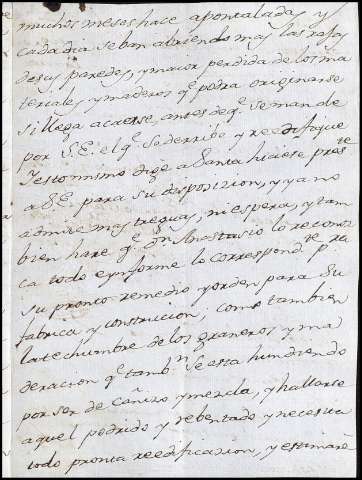 muchos meses hace apontaladas y
cada dia se ban abriendo mas las rajas
de sus paredes, y maior perdida de los ma
teriales, y maderos q.e podra originarse
si llega a caerse, antes de q.e se mande
por S.E. el q.e se derribe y reedifique
Y esto mismo dige a hiciese prest.te
a S.E. para su disposicion, y ya no
admite mas treguas, ni espera, y tam
bien hare q.e D.n Anastasio lo reconoz
ca todo e ynforme lo correspond.te p.ra
su pronto remedio y orden para su
fabrica, y construcion; como tambien
la techumbre de los graneros y ma
deracion q.e tamb.n se esta hundiendo
por ser de cañizo y mezcla, y hallarse
aquel podrido y rebentado y necesita
todo pronta reedificacion, y estimaré